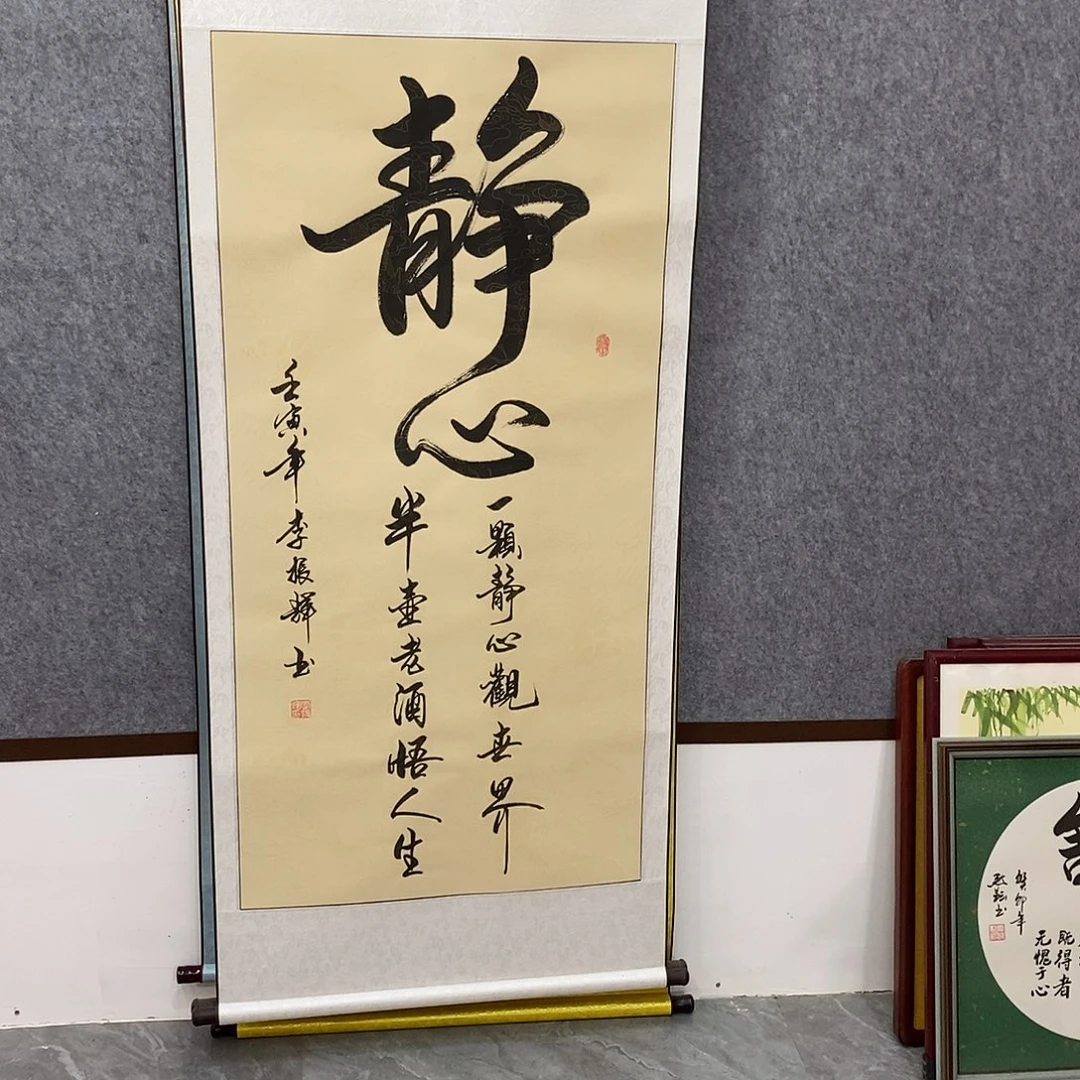 静心
一顆静心觀世界
半壺老酒悟人生
壬寅年 李振輝书
癸卯年
既得者
无愧于心